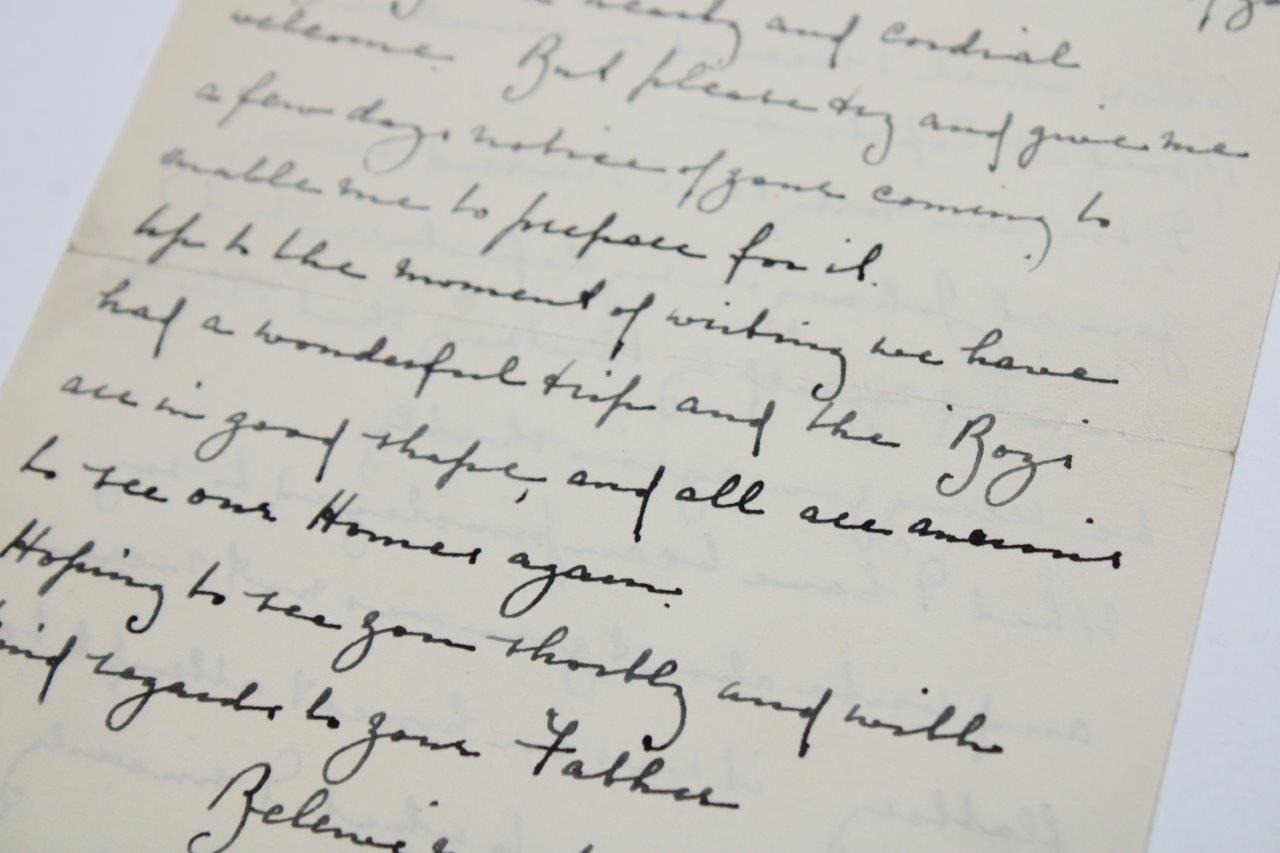 hearty and cordial
welcome. But please try and give me
a few days notice of your coming to
enable me to prepare for it.
Up to the moment of writing we have
had a wonderful trip and the "Boys
are in good shape, and all are anxious
to see our Homes again.
Hoping to see you shortly and with
kind regards to your Father
Believe